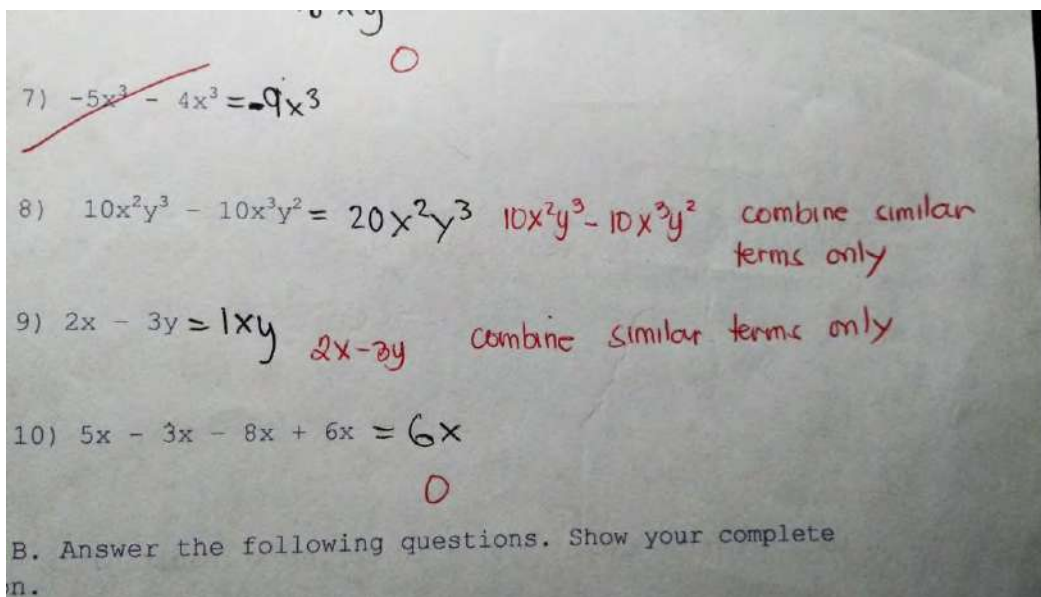 0
7) -5x³ - 4x³ = -9x³
8) 10x²y³ - 10x³y² = 20x²y³ 10x²y³ - 10x³y² combine similar
terms only
9) 2x - 3y = 1xy 2x-3y combine similar terms only
10) 5x - 3x - 8x + 6x = 6x
0
B. Answer the following questions. Show your complete
n.